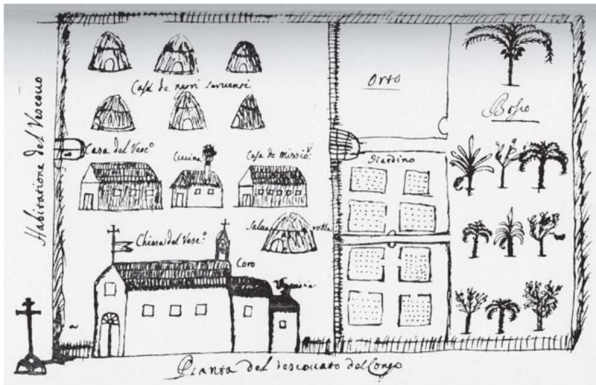 Habitatione del Vescouo
Case de neri seruenti
Casa del Vesc.º
Cucina
Case de missio:
Chiesa del Vesc.º
Coro
Orto
Bosco
Giardino
Pianta del Vescouato del Congo